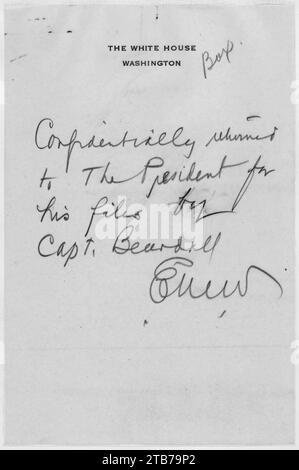 THE WHITE HOUSE
WASHINGTON
Box.
Confidentially returned
to The President for
his files by
Capt. Beardall
alamy
Image ID: 2TB79P2
www.alamy.com